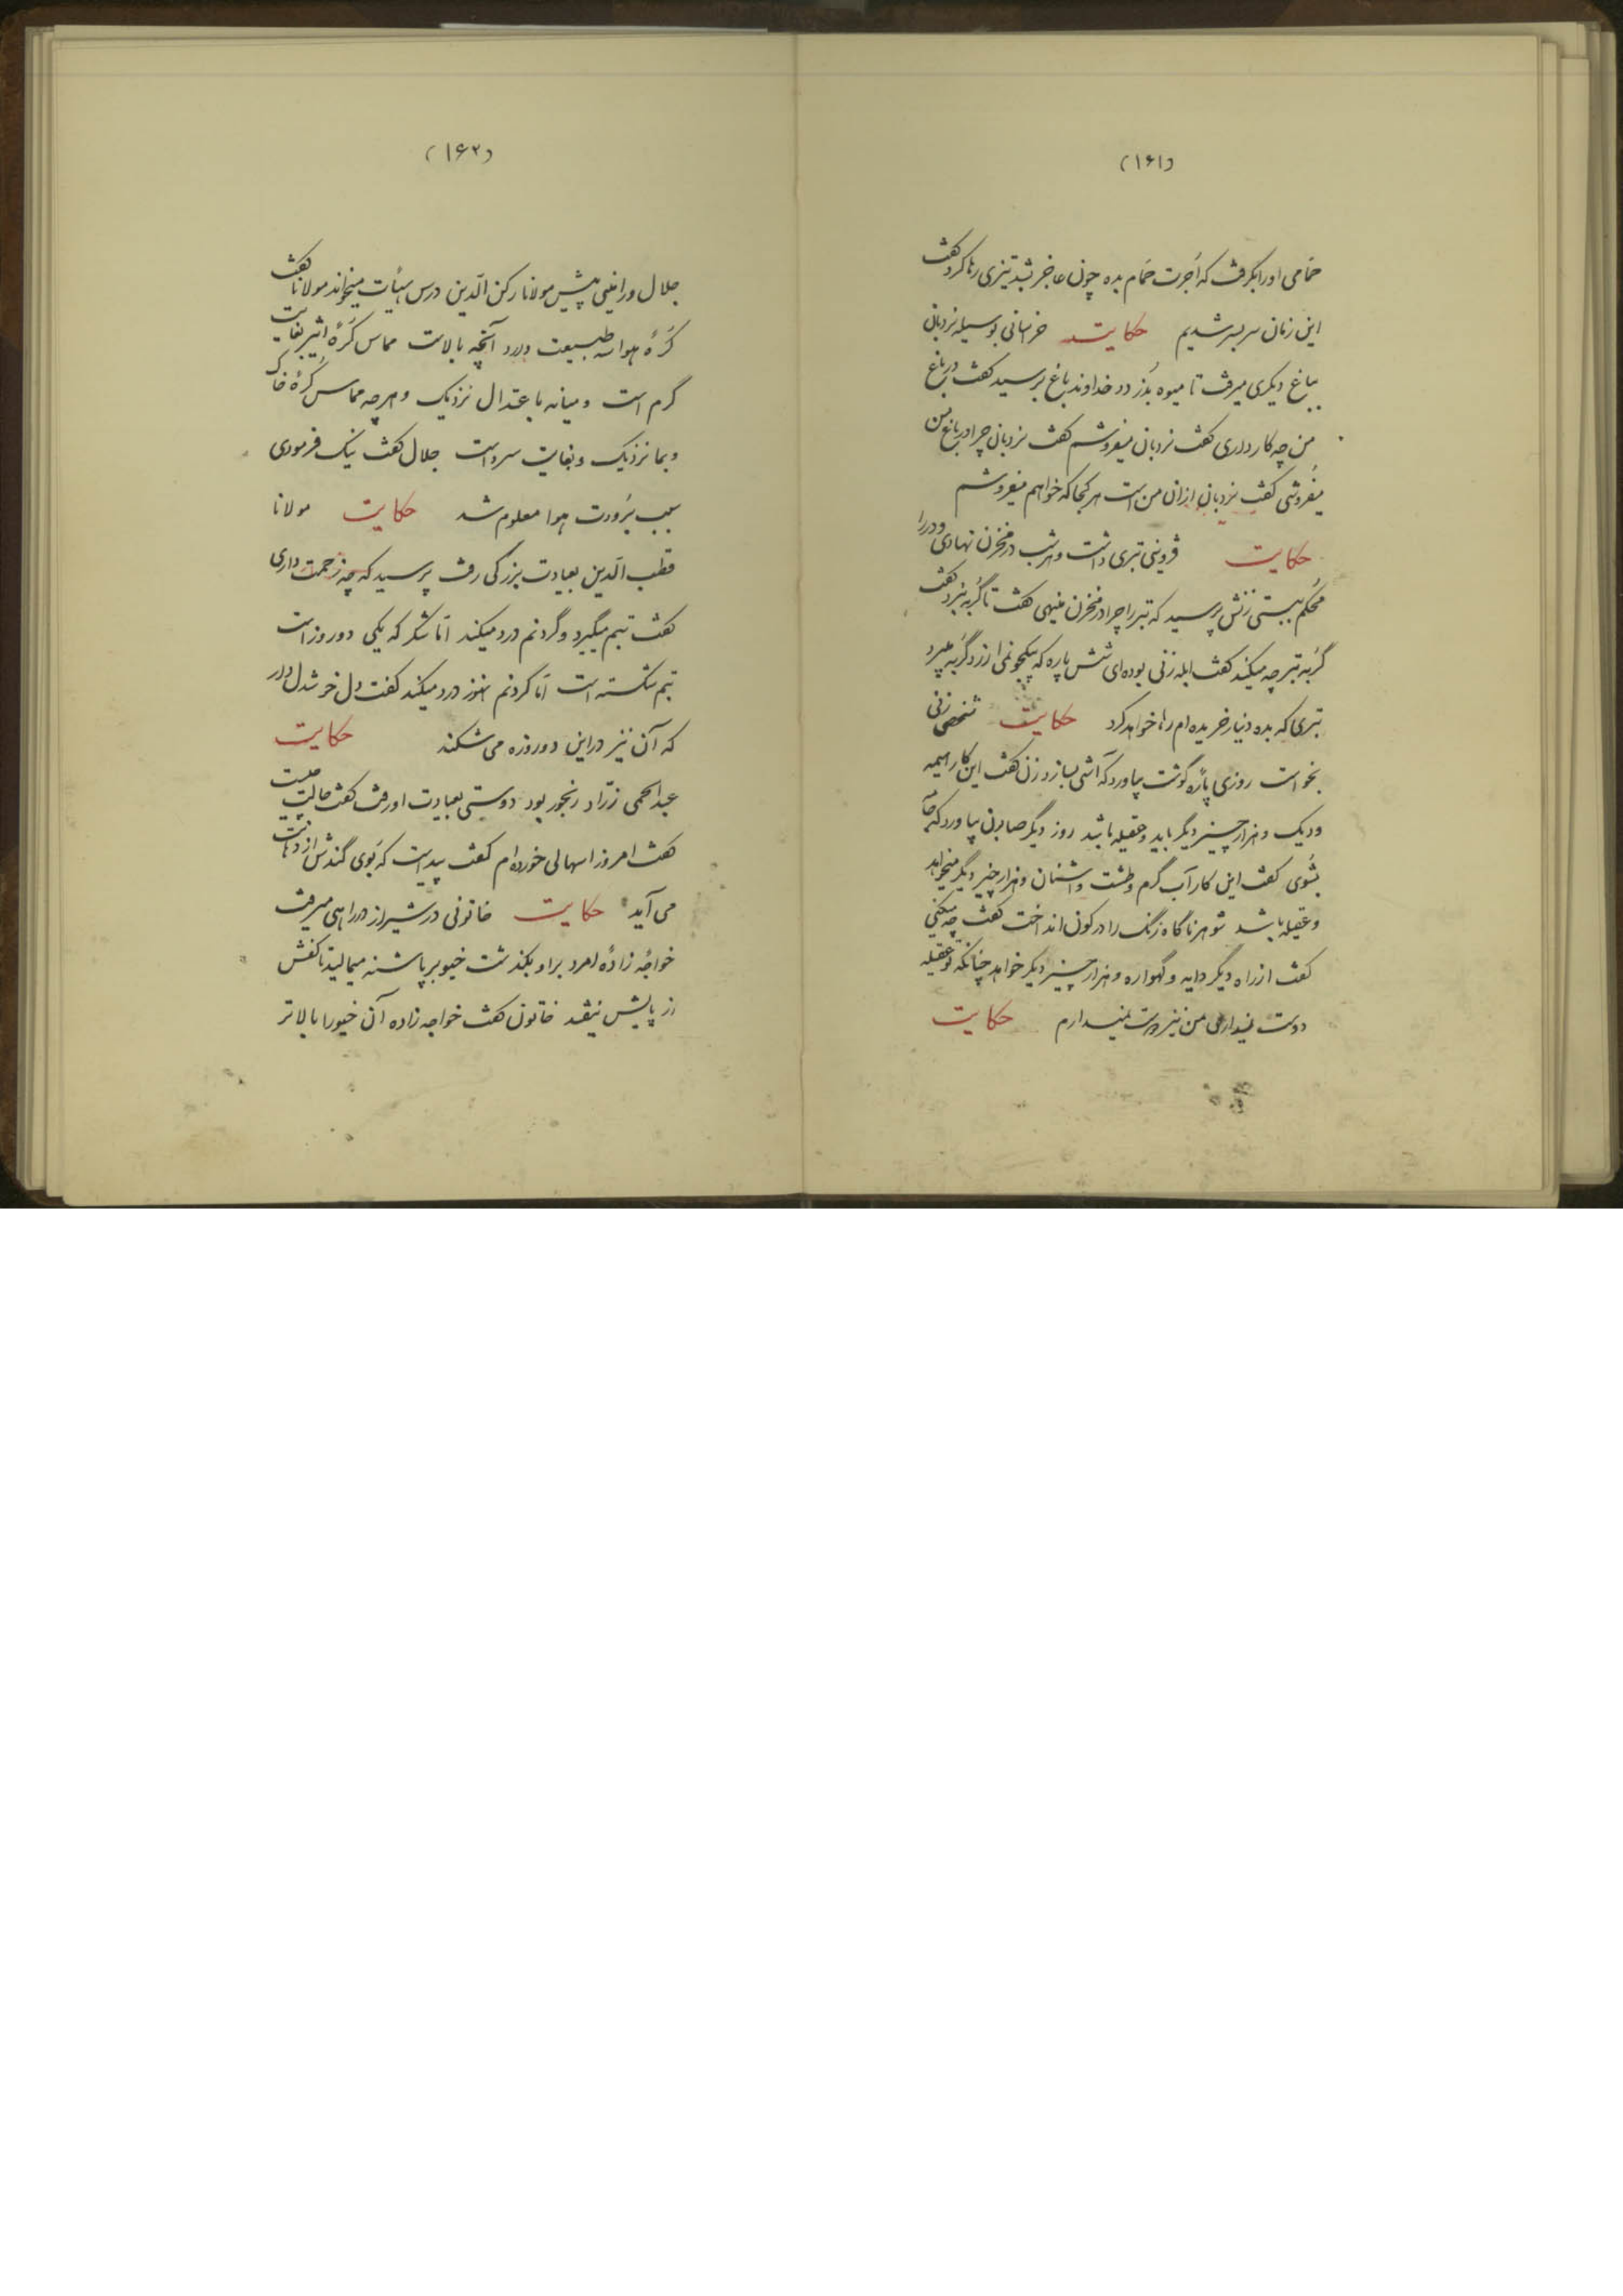 (۱۶۱)
حمّامی او را بگرفت که اُجرت حمّام بده چون عاجز شد تیزی رها کرد گفت
این زمان سر بسر شدیم حکایت خراسانی بوسیله نردبان
بباغ دیگری میرفت تا میوه بدزدد خداوند باغ برسید گفت در باغ
من چه کار داری گفت نردبان میفروشم گفت نردبان چرا در باغ من
میفروشی گفت نردبان از آن من است هر کجا که خواهم میفروشم
حکایت قزوینی تبری داشت و هر شب در مخزن نهادی و در را
محکم ببستی زنش پرسید که تبر را چرا در مخزن مینهی گفت تا گربه نبرد گفت
گربه تبر چه میکند گفت ابله زنی بوده‌ای شش پاره که بیکجو نمی‌ارزد گربه میبرد
تبری که بده دینار خریده‌ام رها خواهد کرد حکایت شخصی زنی
بخواست روزی پاره گوشت بیاورد که آشی بسازد زن گفت این کار را هیمه
و دیک و هزار چیز دیگر باید و عقیله باشد روز دیگر صابون بیاورد که جامه
بشوی گفت این کار آب گرم و طشت و اشنان و هزار چیز دیگر میخواهد
و عقیله باشد شوهر ناگاه زنک را در کون انداخت گفت چه میکنی
گفت از راه دیگر دایه و گهواره و هزار چیز دیگر خواهد چنانکه تو عقیله
دوست نمیداری من نیز دوست نمیدارم حکایت
(۱۶۲)
جلال ورامینی پیش مولانا رکن الدین درس هیأت میخواند مولانا گفت
کرهٔ هوا سه طبیعت دارد آنچه بالاست مماس کرهٔ اثیر بغایت
گرم است و میانه باعتدال نزدیک و هر چه مماس کرهٔ خاک
و بما نزدیک و بغایت سرد است جلال گفت نیک فرمودی
سبب برودت هوا معلوم شد حکایت مولانا
قطب الدین بعیادت بزرگی رفت پرسید که چه زحمت داری
گفت تبم میگیرد و گردنم درد میکند امّا شکر که یکی دو روز است
تبم شکسته است امّا گردنم هنوز درد میکند گفت دل خوشدل دار
که آن نیز در این دو روزه می‌شکند حکایت
عبدالحی زرّاد رنجور بود دوستی بعیادت او رفت گفت حالت چیست
گفت امروز اسهالی خورده‌ام گفت پیداست که بوی گندش از دهانت
می‌آید حکایت خاتونی در شیراز در راهی میرفت
خواجه زادهٔ امرد بر او بگذشت خیو بر پاشنه میمالید تا کفش
از پایش نیفتد خاتون گفت خواجه زاده آن خیو را بالاتر